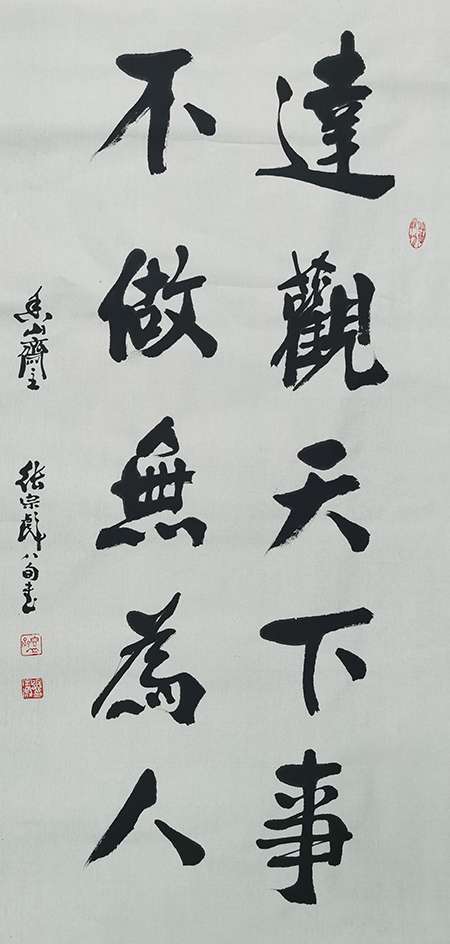 達觀天下事
不做無為人
山齋主
張宗彪八旬書